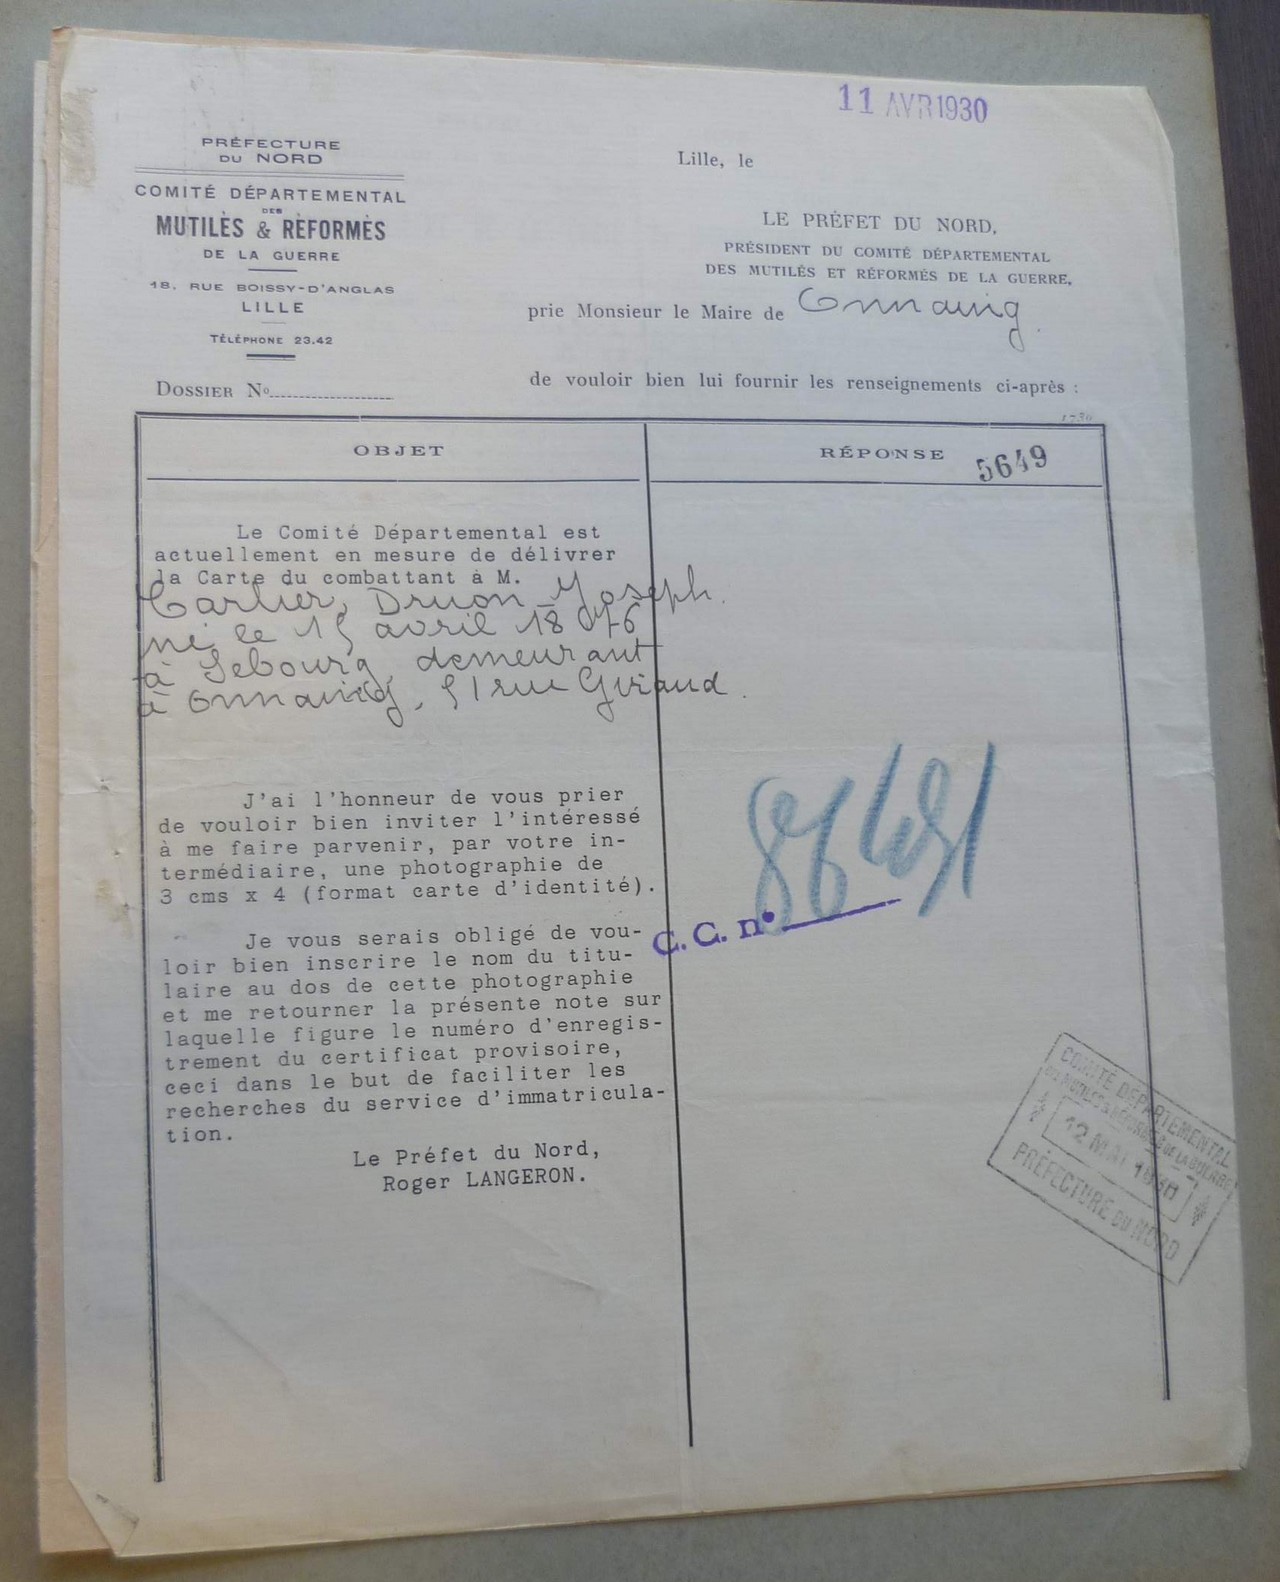 11 AVR 1930
PRÉFECTURE
DU NORD
COMITÉ DÉPARTEMENTAL
DES
MUTILÉS & RÉFORMÉS
DE LA GUERRE
18, RUE BOISSY-D'ANGLAS
LILLE
TÉLÉPHONE 23.42
DOSSIER No
Lille, le
LE PRÉFET DU NORD,
PRÉSIDENT DU COMITÉ DÉPARTEMENTAL
DES MUTILÉS ET RÉFORMÉS DE LA GUERRE,
prie Monsieur le Maire de Onnaing.
de vouloir bien lui fournir les renseignements ci-après :
OBJET
RÉPONSE
5649
Le Comité Départemental est
actuellement en mesure de délivrer
la Carte du combattant à M.
Carlier, Druon Joseph.
né le 15 avril 1876
à Sebourg, demeurant
à Onnaing, 51 rue Giraud.
J'ai l'honneur de vous prier
de vouloir bien inviter l'intéressé
à me faire parvenir, par votre in-
termédiaire, une photographie de
3 cms x 4 (format carte d'identité).
Je vous serais obligé de vou-
loir bien inscrire le nom du titu-
laire au dos de cette photographie
et me retourner la présente note sur
laquelle figure le numéro d'enregis-
trement du certificat provisoire,
ceci dans le but de faciliter les
recherches du service d'immatricula-
tion.
Le Préfet du Nord,
Roger LANGERON.
C.C. n°
COMITÉ DÉPARTEMENTAL
DES MUTILÉS & RÉFORMÉS DE LA GUERRE
12 MAI 1930
PRÉFECTURE DU NORD